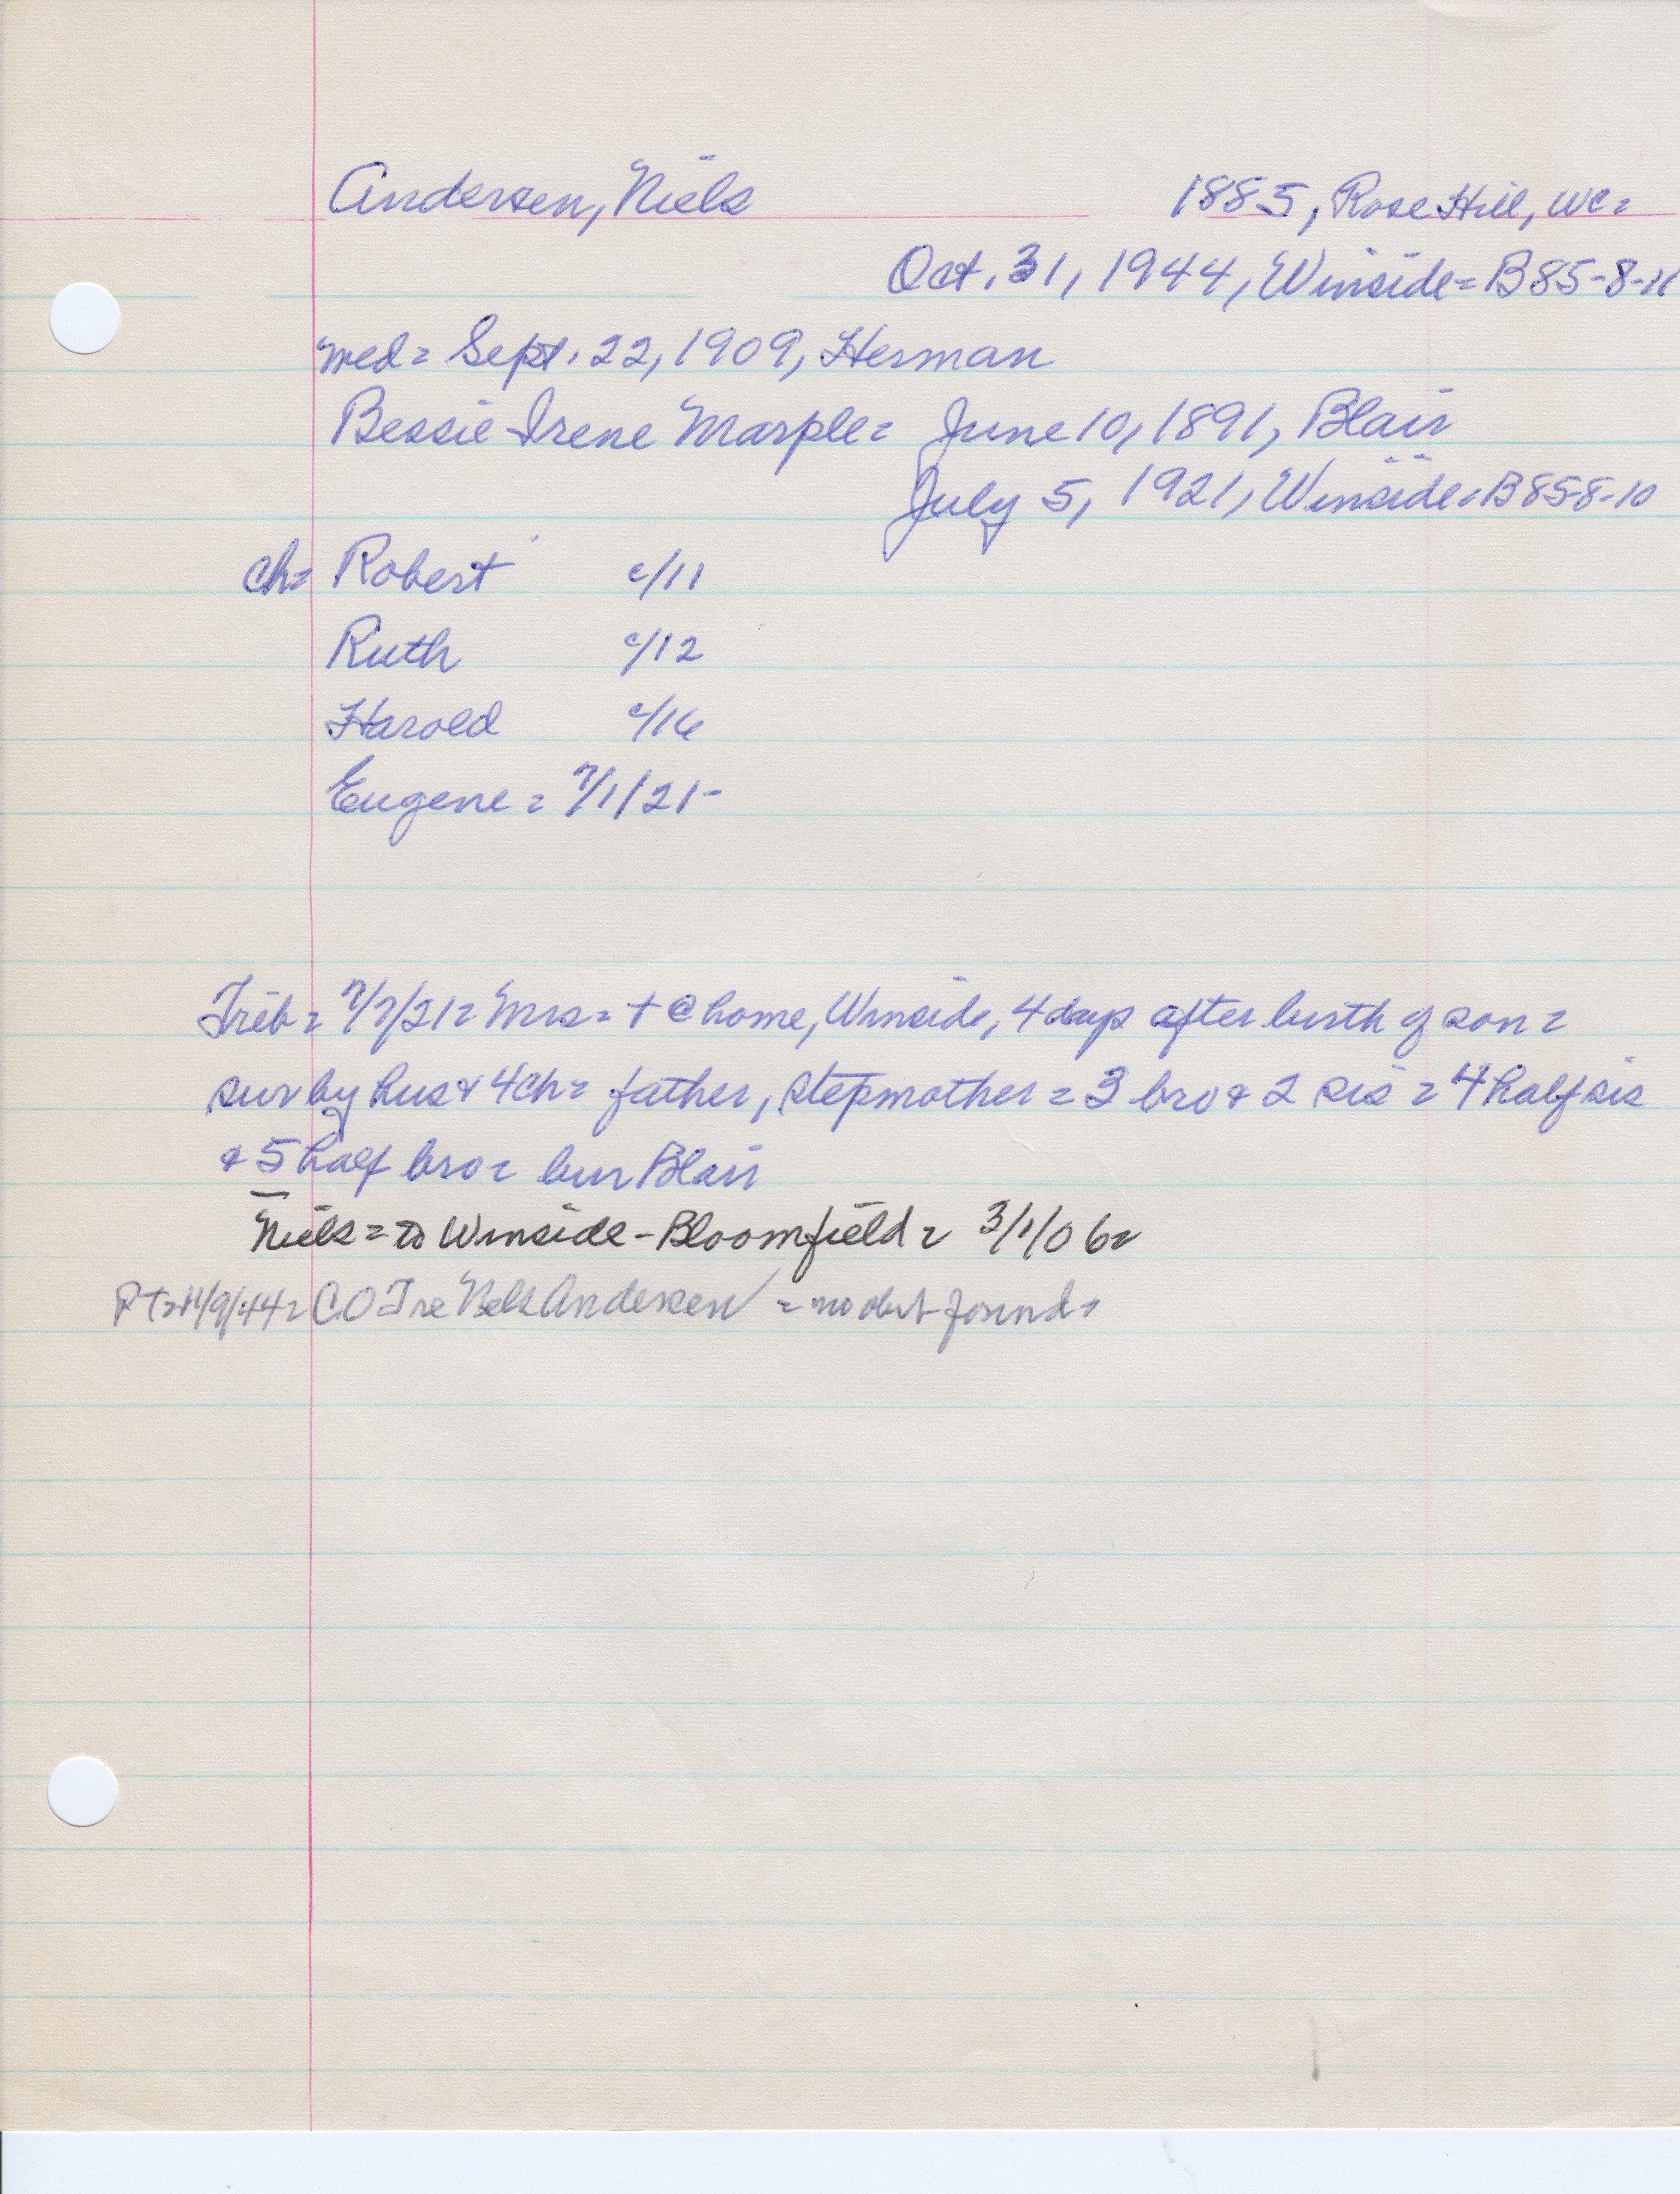 Andersen, Niels 1885, Rose Hill, WC=
Oct. 31, 1944, Winside=B85-8-11
med= Sept. 22, 1909, Herman
Bessie Irene Marple= June 10, 1891, Blair
July 5, 1921, Winside=B85-8-10
Ch= Robert c/11
Ruth c/12
Harold c/16
Eugene = 7/1/21-
Trib= 7/7/21= Mrs= + @ home, Winside, 4 days after birth of son=
sur by hus & 4 ch= father, stepmother = 3 bro & 2 sis = 4 half sis
& 5 half bro= bur Blair
Niels = to Winside - Bloomfield = 3/1/06=
PT=11/9/44= C.O.T re Nels Andersen = no obit found=